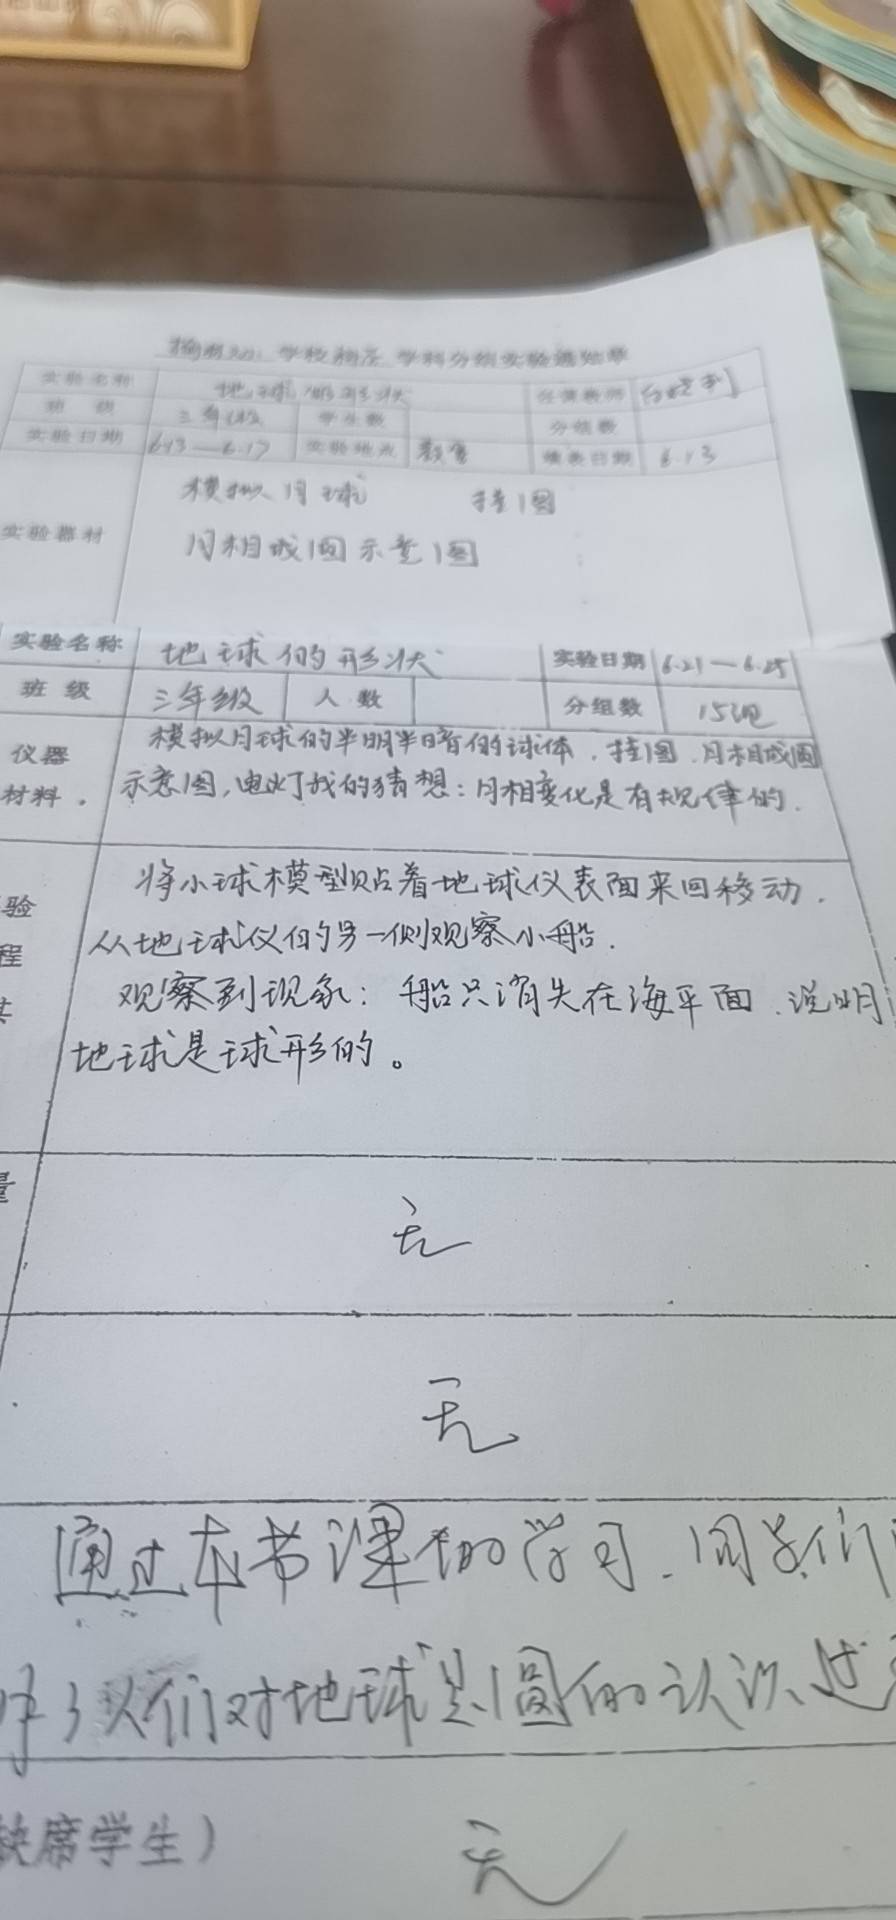 学科分组实验通知单
实验名称 地球的形状 任课教师
班级 三年级 学生数 分组数
实验日期 6.13—6.17 实验地点 教室 填表日期 6.13
实验器材 模拟月球 挂图
月相成因示意图
实验名称 地球的形状 实验日期 6.21—6.25
班级 三年级 人数 分组数 15组
仪器 模拟月球的半明半暗的球体.挂图.月相成因
材料. 示意图,电灯我的猜想:月相变化是有规律的.
将小球模型贴着地球仪表面来回移动.
验
从地球仪的另一侧观察小船.
程
观察到现象:船只消失在海平面.说明
地球是球形的。
量
无
无
通过本节课的学习.同学们
了人们对地球是圆的认识过
缺席学生) 无